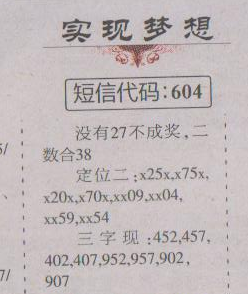 实现梦想
短信代码:604
没有27不成奖,二
数合38
定位二:x25x,x75x,
x20x,x70x,xx09,xx04,
xx59,xx54
三字现:452,457,
402,407,952,957,902,
907
5/
、
7/